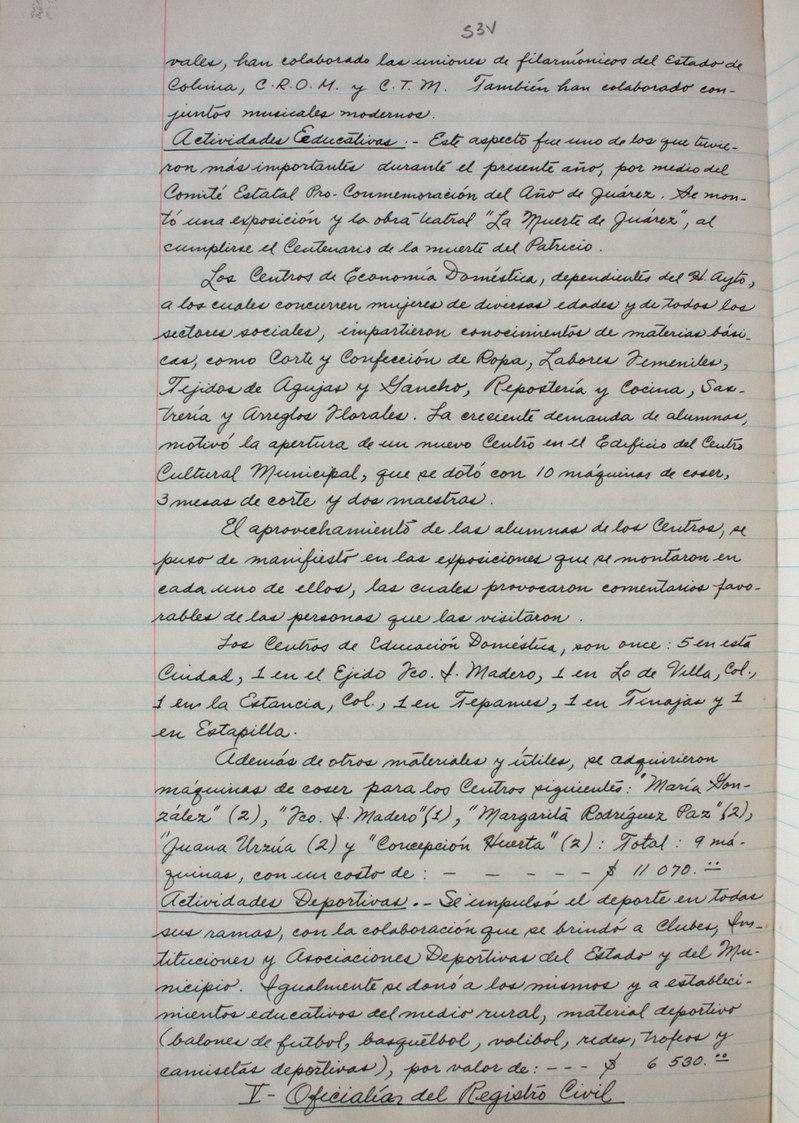 53V
vales, han colaborado las uniones de filarmónicos del Estado de
Colima, C.R.O.M. y C.T.M. También han colaborado con-
juntos musicales modernos.
Actividades Educativas:- Este aspecto fue uno de los que tuvie-
ron más importantes durante el presente año, por medio del
Comité Estatal Pro-Conmemoración del Año de Juárez. Se mon-
tó una exposición y la obra teatral "La Muerte de Juárez", al
cumplirse el Centenario de la muerte del Patricio.
Los Centros de Economía Doméstica, dependientes del H. Ayto,
a los cuales concurren mujeres de diversas edades y de todos los
sectores sociales, impartieron conocimientos de materias bási-
cas, como Corte y Confección de Ropa, Labores Femeniles,
Tejidos de Agujas y Gancho, Repostería y Cocina, Sas-
trería y Arreglos Florales. La creciente demanda de alumnas,
motivó la apertura de un nuevo Centro en el Edificio del Centro
Cultural Municipal, que se dotó con 10 máquinas de coser,
3 mesas de corte y dos maestras.
El aprovechamiento de las alumnas de los Centros, se
puso de manifiesto en las exposiciones que se montaron en
cada uno de ellos, las cuales provocaron comentarios favo-
rables de las personas que las visitaron.
Los Centros de Educación Doméstica, son once: 5 en esta
Ciudad, 1 en el Ejido Fco. I. Madero, 1 en Lo de Villa, Col.,
1 en la Estancia, Col., 1 en Tepames, 1 en Tinajas y 1
en Estapilla.
Además de otros materiales y útiles, se adquirieron
máquinas de coser para los Centros siguientes: "María Gon-
zález" (2), "Fco. I. Madero" (1), "Margarita Rodríguez Paz" (2),
"Juana Urzúa (2) y "Concepción Huerta" (2): Total: 9 má-
quinas, con un costo de: - - - - - $ 11 070.00
Actividades Deportivas.- Se impulsó el deporte en todas
sus ramas, con la colaboración que se brindó a Clubes, Ins-
tituciones y Asociaciones Deportivas del Estado y del Mu-
nicipio. Igualmente se donó a los mismos y a estableci-
mientos educativos del medio rural, material deportivo
(balones de futbol, basquétbol, volibol, redes, trofeos y
camisetas deportivas), por valor de: - - - $ 6 530.00
V- Oficialías del Registro Civil